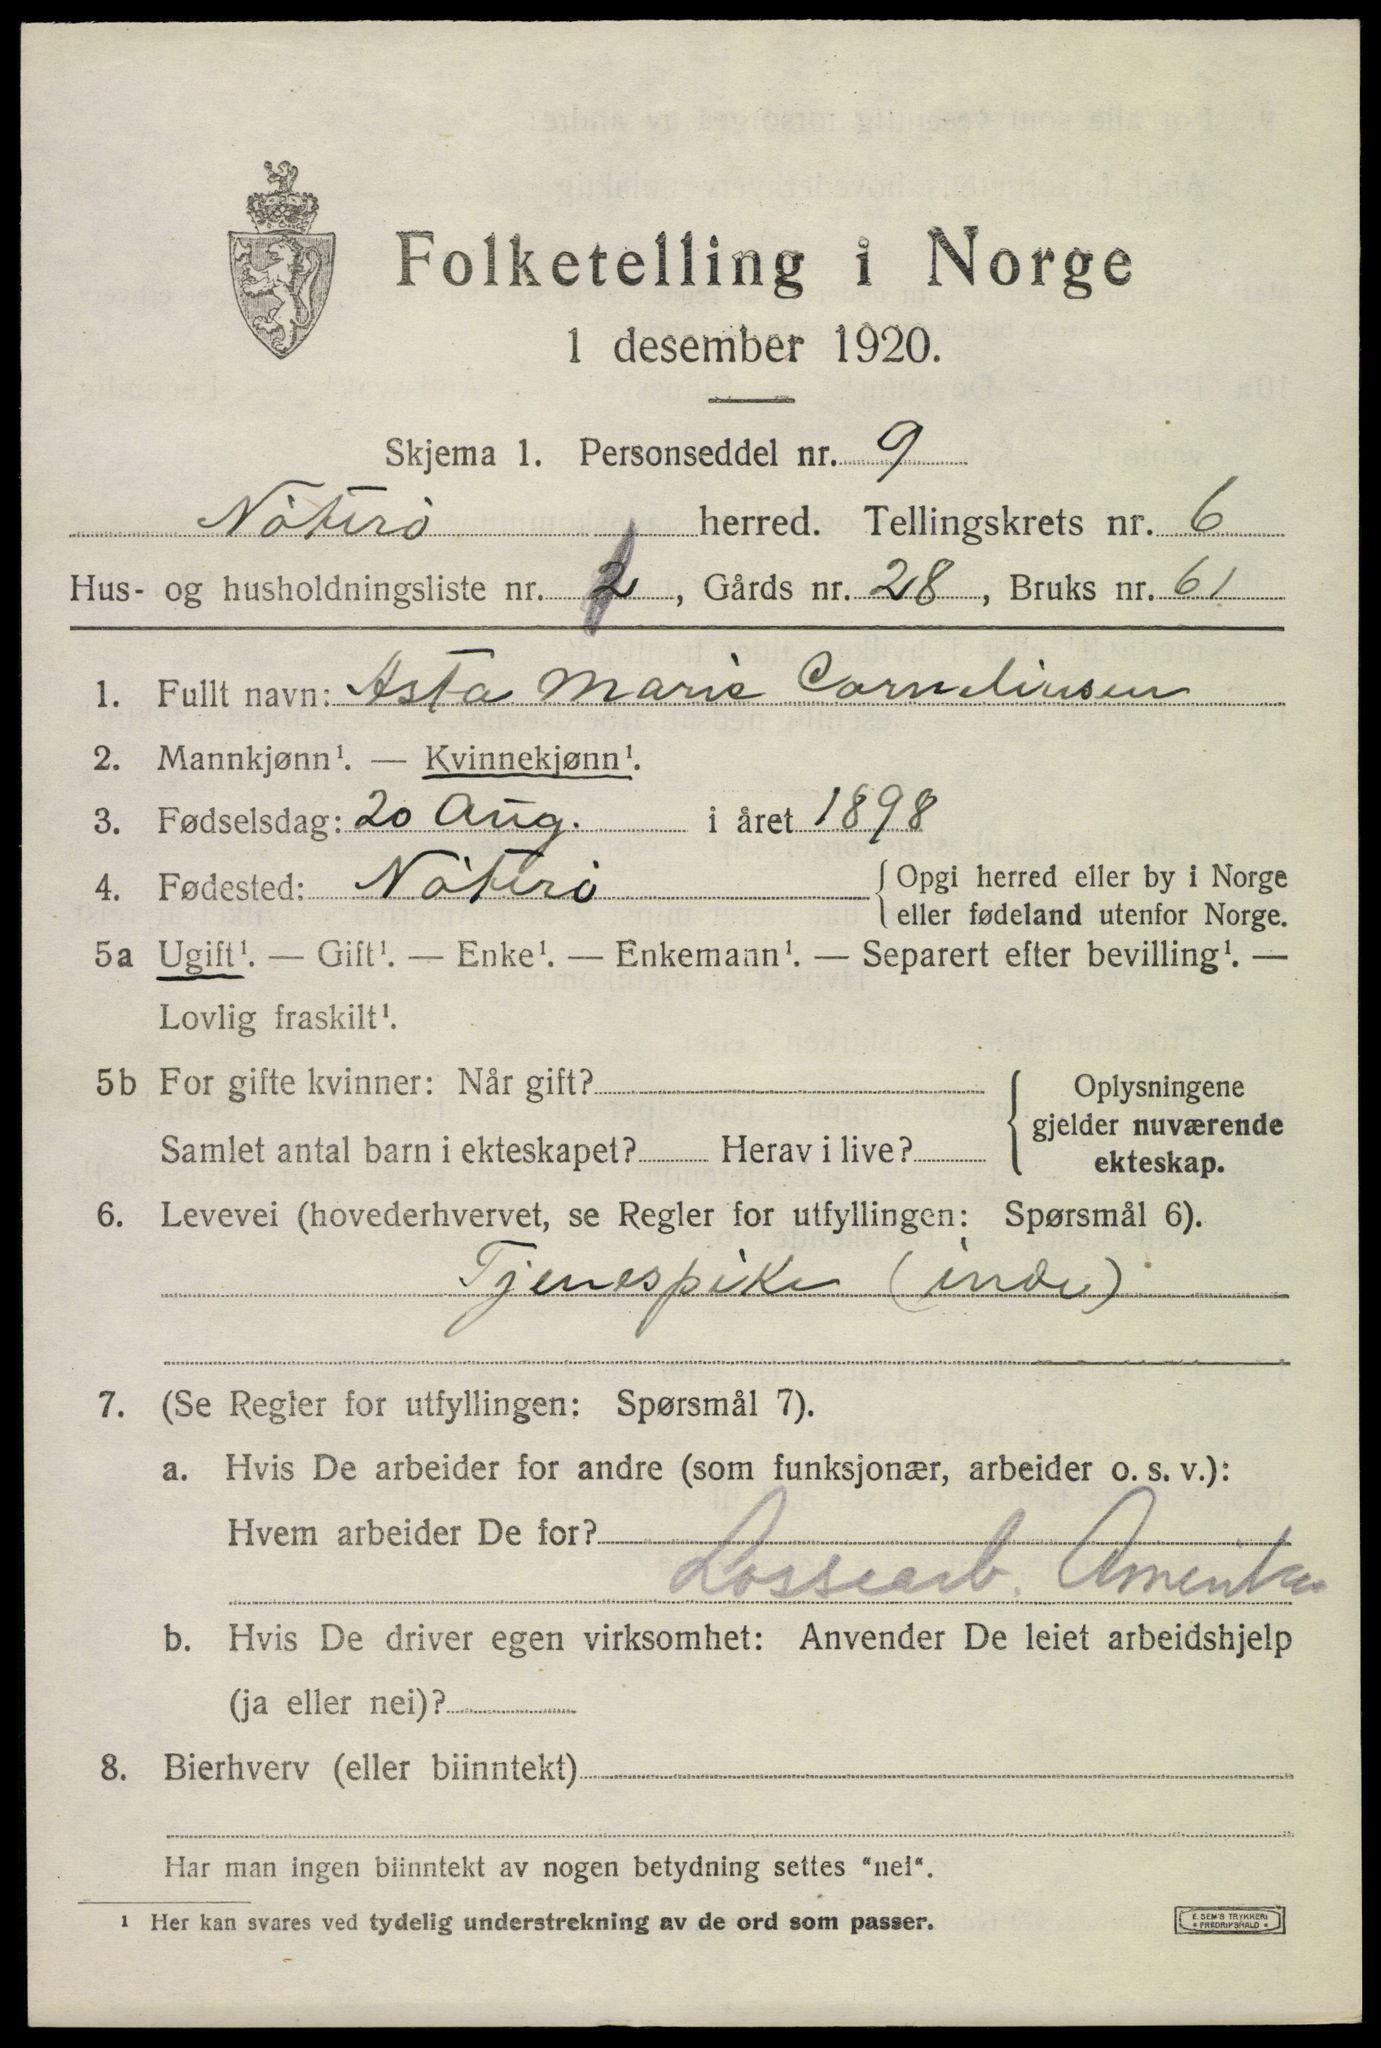 Folketelling i Norge
1 desember 1920.
Skjema 1. Personseddel nr. 9
Nøterø herred. Tellingskrets nr. 6
Hus- og husholdningsliste nr. 2, Gårds nr. 28, Bruks nr. 61
1. Fullt navn: Asta Marie Corneliusen
2. Mannkjønn¹. — Kvinnekjønn¹.
3. Fødselsdag: 20 Aug. i året 1898
4. Fødested: Nøterø { Opgi herred eller by i Norge
eller fødeland utenfor Norge.
5a Ugift¹. — Gift¹. — Enke¹. — Enkemann¹. — Separert efter bevilling¹. —
Lovlig fraskilt¹.
5b For gifte kvinner: Når gift? { Oplysningene
gjelder nuværende
ekteskap.
Samlet antal barn i ekteskapet? Herav i live?
6. Levevei (hovederhvervet, se Regler for utfyllingen: Spørsmål 6).
Tjenespike (inde)
7. (Se Regler for utfyllingen: Spørsmål 7).
a. Hvis De arbeider for andre (som funksjonær, arbeider o. s. v.):
Hvem arbeider De for?
Lossearb. Amerika
b. Hvis De driver egen virksomhet: Anvender De leiet arbeidshjelp
(ja eller nei)?
8. Bierhverv (eller biinntekt)
Har man ingen biinntekt av nogen betydning settes "nei".
¹ Her kan svares ved tydelig understrekning av de ord som passer.
E. SEM'S TRYKKERI
* FREDRIKSHALD *